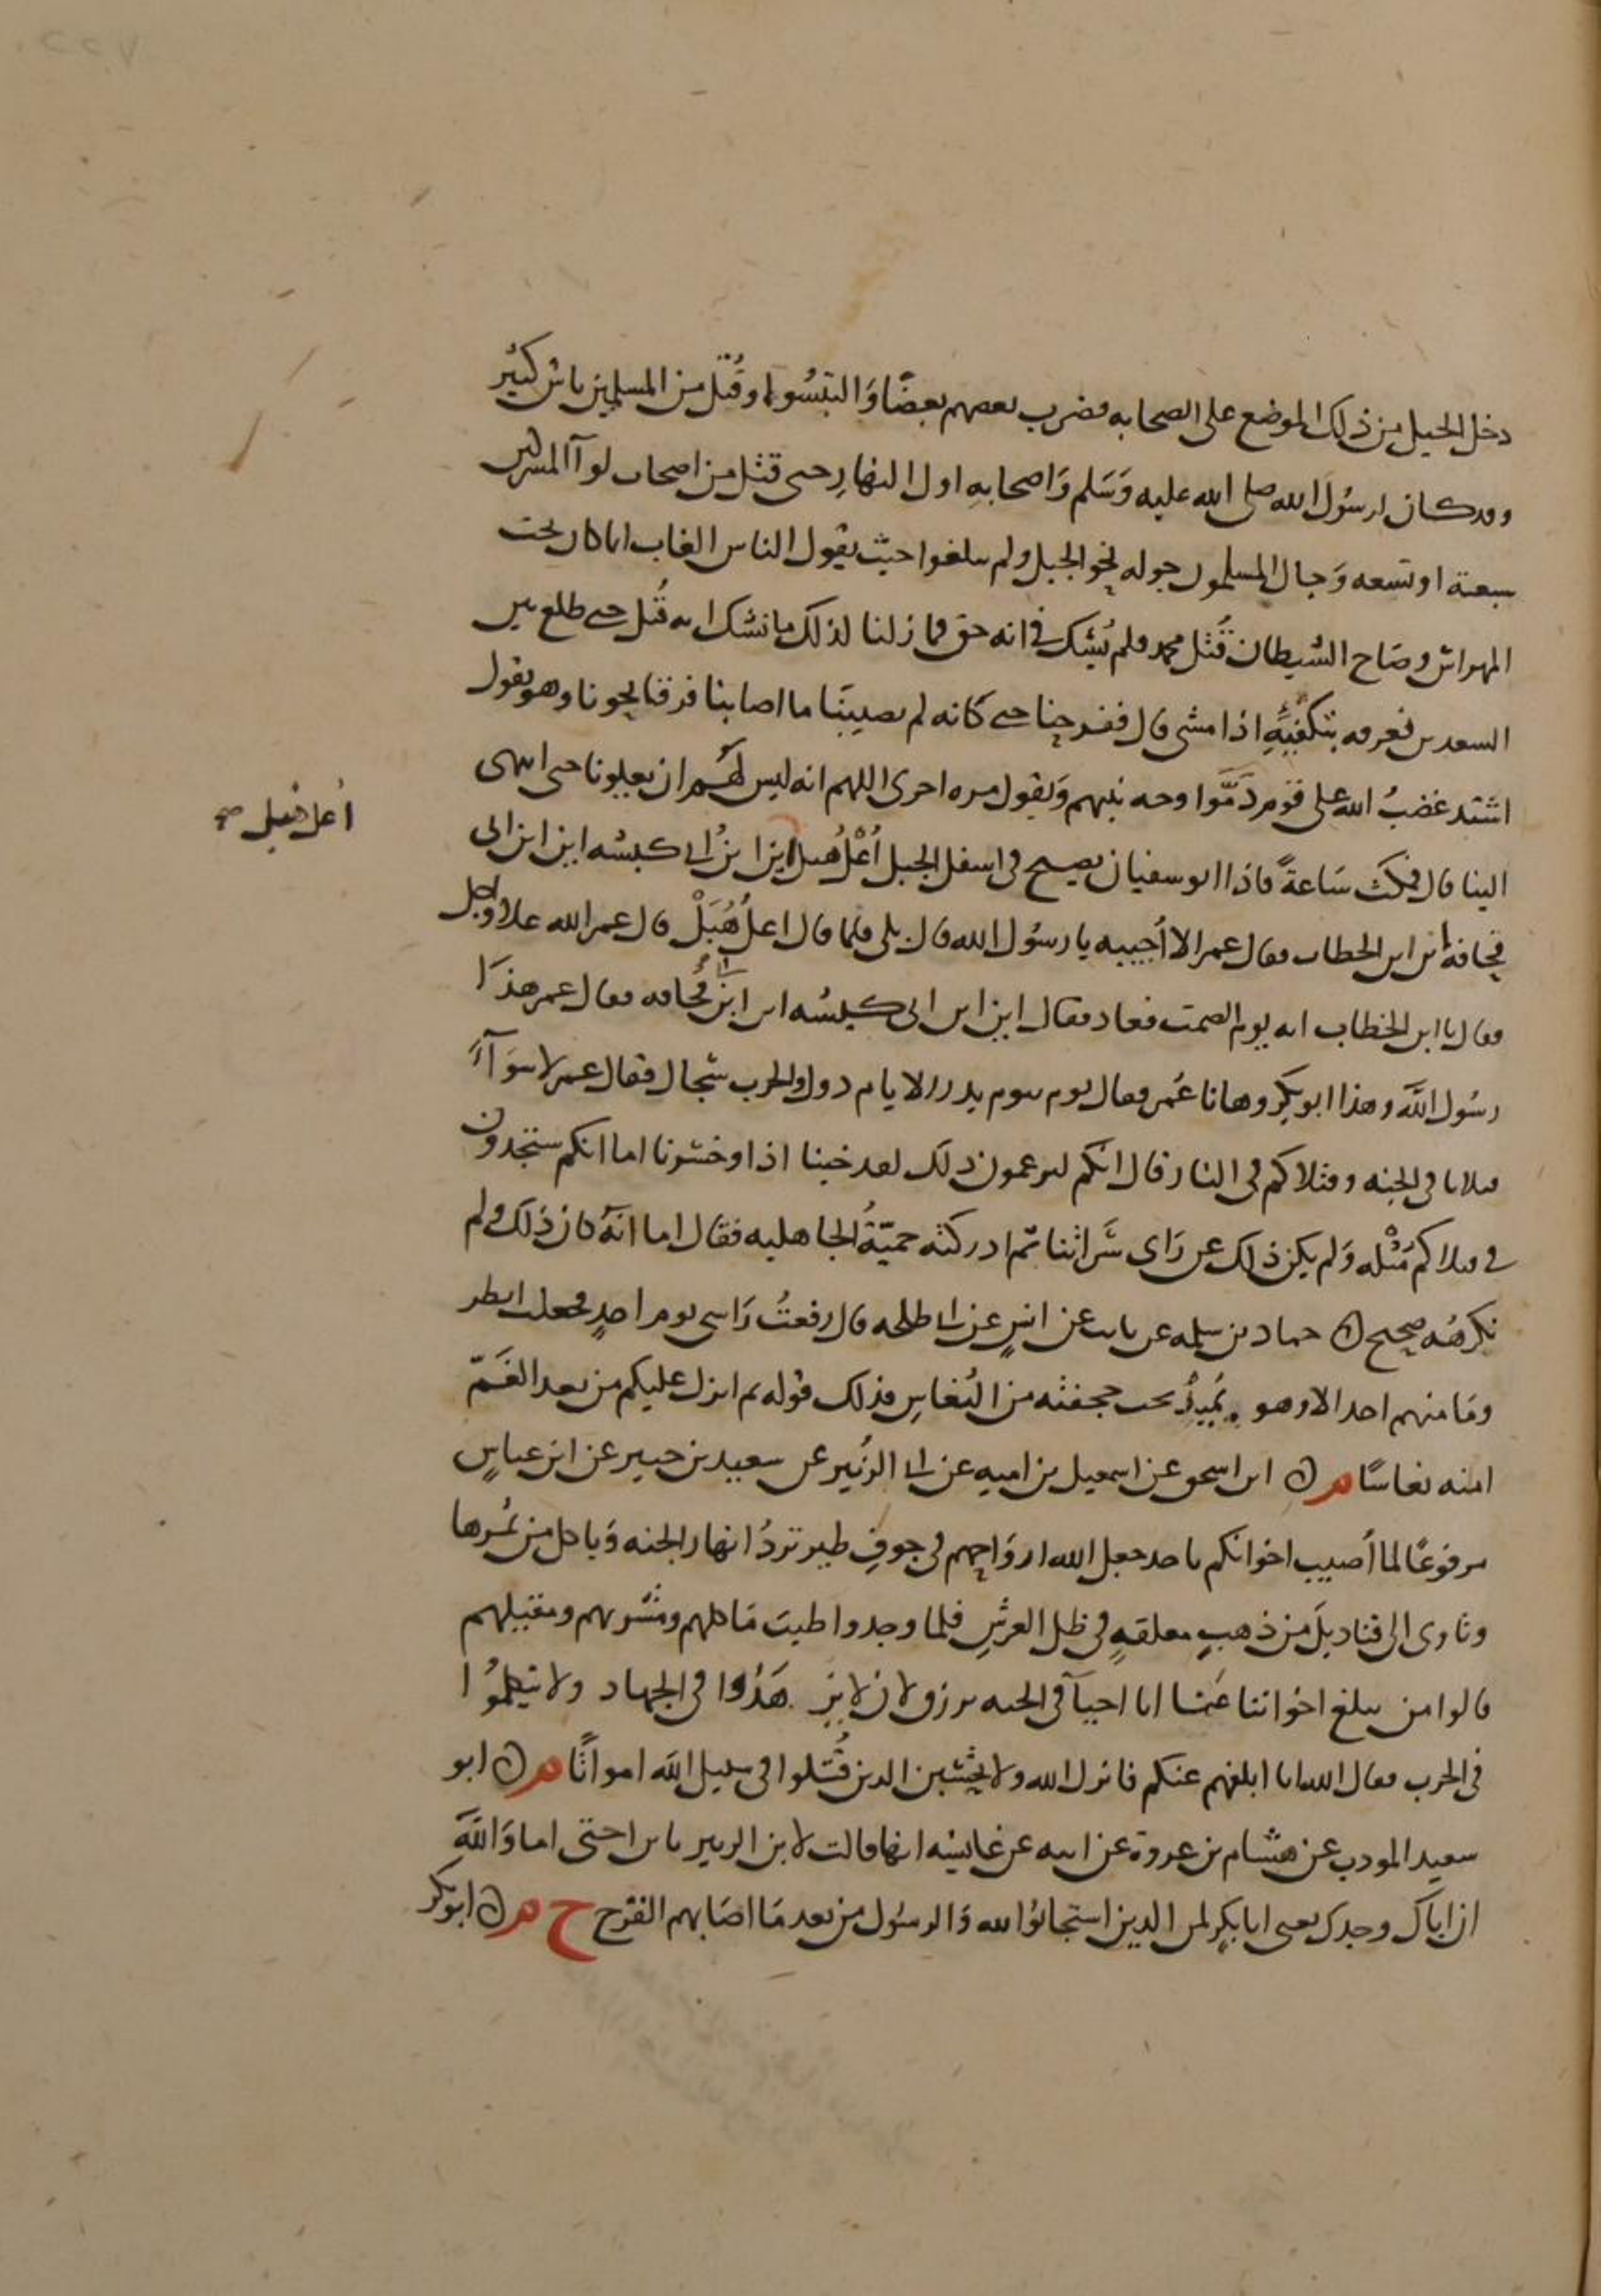 دخل الخيل من ذلك الموضع على الصحابه فضرب بعضهم بعضًا وَالتبسُوا وقُتل من المسلمين ناس كثير
وقد كان لرسُول الله صلى الله عليه وَسَلم وَاصحابهِ اول النهارِ حتى قتل من اصحاب لوآ المشركين
سبعة او تسعه وَجال المسلمون جوله نحو الجبل ولم يبلغوا حيث يقول الناس الغاب انما كان تحت
المهراس وصَاح الشيطان قُتل محمد فلم يُشك في انه حق فما زلنا لذلك ما نشك انه قُتل حتى طلع بين
السعدين فعرفه بتكفيهِ اذا مشى قال ففرحنا حتى كانه لم يصيبنَا ما اصابنا فرقا نحونا وهو يقول
اشتد غضبُ الله على قوم دَمَّوا وجه نبيهم وَيقول مره اخرى اللهم انه ليس لهُم ان يعلونا حتى انتهى
الينا قال فمكث سَاعةً فاذا ابو سفيان يصيح في اسفل الجبل اُعْلُ هُبل اين ابنُ ابي كبشه اين ابن ابي
قحافه اين ابن الخطاب فقال عمر الا اُجيبه يا رسُول الله قال بلى فلما قال اعلُ هُبَلْ قال عمر الله اعلا واجل
فقال يا ابن الخطاب انه يوم الصمت فعاد فقال اين ابن ابي كبشه اين ابن ابي قُحافه فقال عمر هذَا
رسُول اللهَ وهذا ابو بكرٍ وها نا عُمر فقال يوم بيوم بدر الايام دول والحرب سجال فقال عمر لا سَوَآءً
قتلانا في الجنه وقتلاكم في النار قال انكم لتزعمون ذلك لقد خبنا اذا وخسرنا اما انكم ستجدون
في قتلاكم مُثْله وَلم يكن ذلك عن رَاى سَراتنا ثم ادركته حميّةُ الجاهليه فقال اما انهُ كان ذلك ولم
نكرهُه صحيح ۞ حماد بن سلمه عن ثابت عن انسٍ عن ابي طلحه قال رفعتُ رَاسى يوم احدٍ فجعلت انظر
ومَا منهم احد الا وهو يَميدُ تحت حجفته من النُعاسِ فذلك قوله ثم انزل عليكم من بعد الغَمّ
امنه نعاسًا م ۞ ابن اسحق عن اسمعيل بن اميه عن ابي الزُبير عن سعيد بن جبير عن ابن عباسٍ
مرفوعًا لما اُصيب اخوانكم باحد جعل الله ارواحهم في جوفِ طير تردُ انهار الجنه وَياكل من ثمُرها
وتاوى الى قناديلَ من ذهبٍ معلقهٍ في ظل العرشِ فلما وجدوا طيبَ مَاكلهم ومشربهم ومقيلهم
قالوا من يبلغ اخواننا عَنا انا احيآ في الجنه نرزق لان لا يزهَدُوا في الجهاد ولا ينكلُوا
في الحرب فقال الله انا ابلغهم عنكم فانزل الله ولا تحسبن الذين قُتلوا في سبيل الله امواتًا م ۞ ابو
سعيد المودب عن هشام بن عروة عن ابيه عن عايشه انها قالت لابن الزبير يابن اختى اما وَاللهَ
ان اباك وجدك يعنى ابا بكرٍ لمن الذين استجابُوا لله وَالرسُول من بعد مَا اصَابهم القرْح خ م ۞ ابو بكر
اُعل هُبل صح